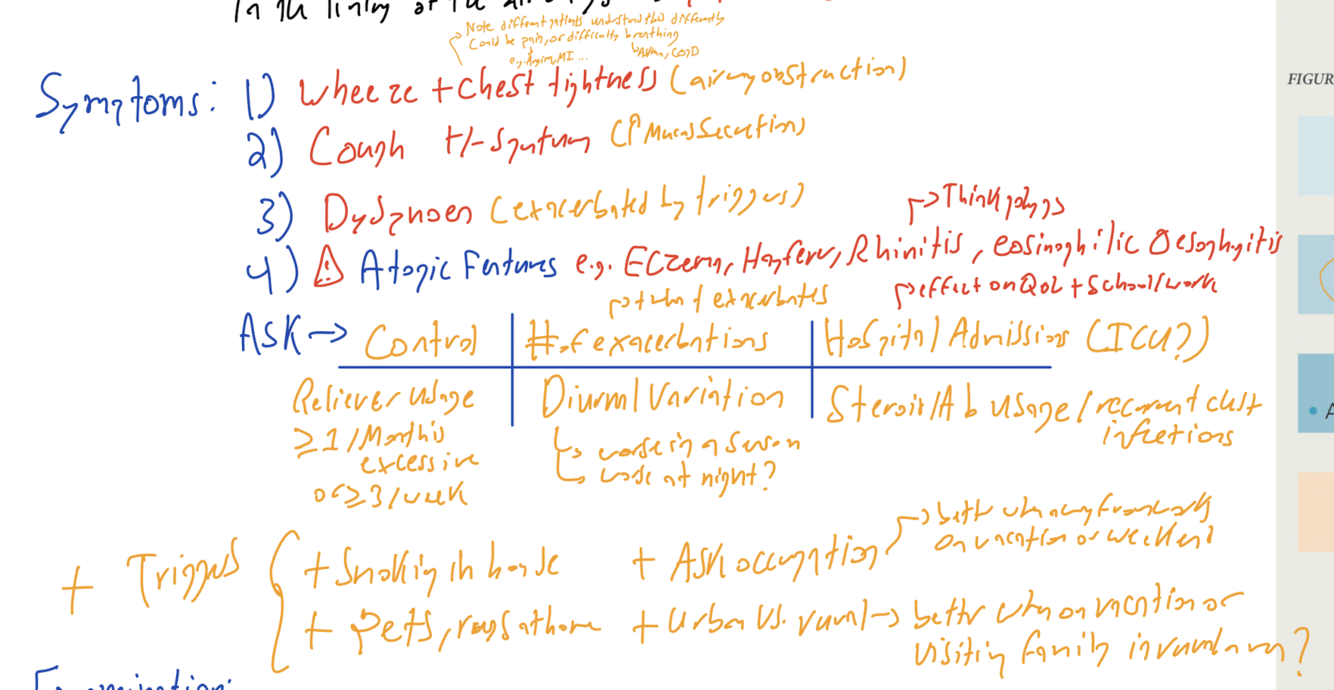 in the lining of the
Note different patients understand this differently
Could be pain, or difficulty breathing
e.g. Angina, MI ... Asthma, COPD
Symptoms: 1) Wheeze + chest tightness (airway obstruction)
2) Cough +/- Sputum (↑ Mucus Secretion)
3) Dyspnoea (exacerbated by triggers)
→ Think polyps
4) ⚠ Atopic Features e.g. Eczema, Hayfever, Rhinitis, eosinophilic Oesophagitis
→ # of exacerbates
→ effect on QoL + School/work
ASK → Control | #. of exacerbations | Hospital Admissions (ICU?)
Reliever usage | Diurnal Variation | Steroid/Ab usage / recurrent chest infections
≥1/Month is excessive
or ≥3/week
↳ worse in a season
↳ worse at night?
+ Triggers
+ Smoking in house + Ask occupation → better when away from work on vacation or weekend
+ Pets, rugs at home + Urban vs. rural → better when on vacation or visiting family in rural area?
Examination:
FIGUR
• A